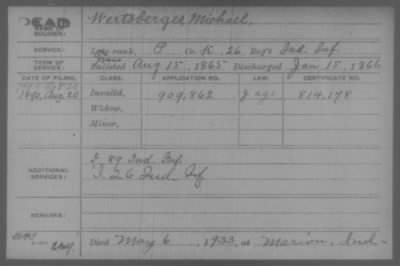 DEAD
NAME OF SOLDIER:
Wertsberger Michael.
SERVICE:
Late rank, P Co. K, 26 Reg't Ind. Inf.
TERM OF SERVICE:
Enlisted Aug 15, 1865 Discharged Jan. 15, 1866
DATE OF FILING. CLASS. APPLICATION NO. LAW. CERTIFICATE NO.
1890, Aug. 20 Invalid, 909,862 814,178
Widow,
Minor,
ADDITIONAL SERVICES:
I. 89 Ind. Inf.
I. 26 Ind. Inf.
REMARKS:
Died May 6, 1933, at Marion, Ind-